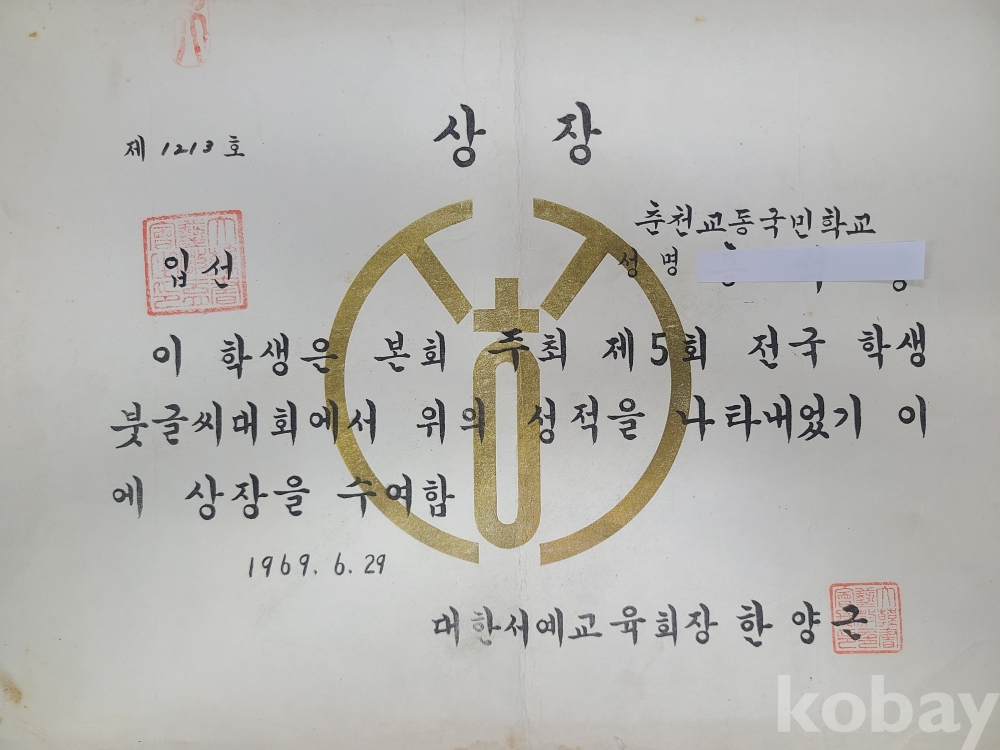 상 장
제 1213 호
춘천교동국민학교
입선
성명
이 학생은 본회 주최 제5회 전국 학생
붓글씨대회에서 위의 성적을 나타내었기 이
에 상장을 수여함
1969. 6. 29
대한서예교육회장 한양근
kobay